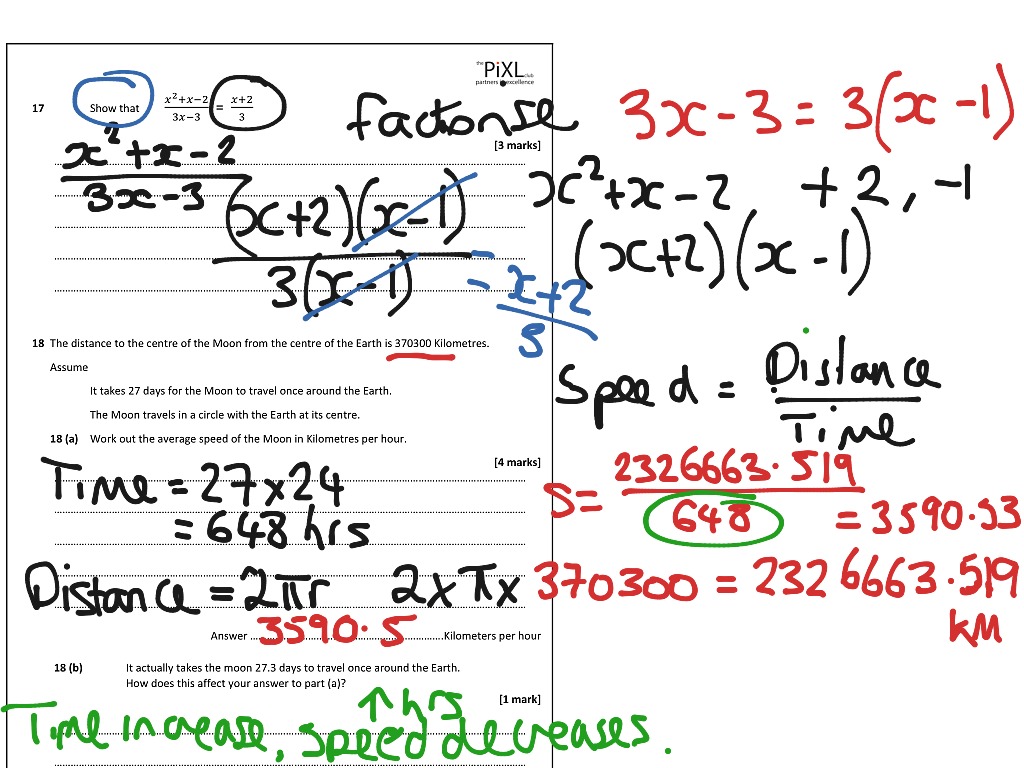 the PiXL club
partners in excellence
17 Show that x²+x−2/3x−3 = x+2/3
factorise
3x − 3 = 3(x − 1)
[3 marks]
x² + x − 2/3x − 3
x² + x − 2 + 2, −1
(x+2)(x−1)/3(x−1)
(x+2)(x − 1)
= x+2/3
18 The distance to the centre of the Moon from the centre of the Earth is 370300 Kilometres.
Assume
It takes 27 days for the Moon to travel once around the Earth.
The Moon travels in a circle with the Earth at its centre.
Speed = Distance/Time
18 (a) Work out the average speed of the Moon in Kilometres per hour.
[4 marks]
Time = 27 x 24
= 648 hrs
S = 2326663.519/648 = 3590.53
Distance = 2πr 2 x π x 370300 = 2326663.519
KM
Answer 3590.5 Kilometers per hour
18 (b) It actually takes the moon 27.3 days to travel once around the Earth.
How does this affect your answer to part (a)?
[1 mark]
↑ hrs
Time increase, speed decreases.